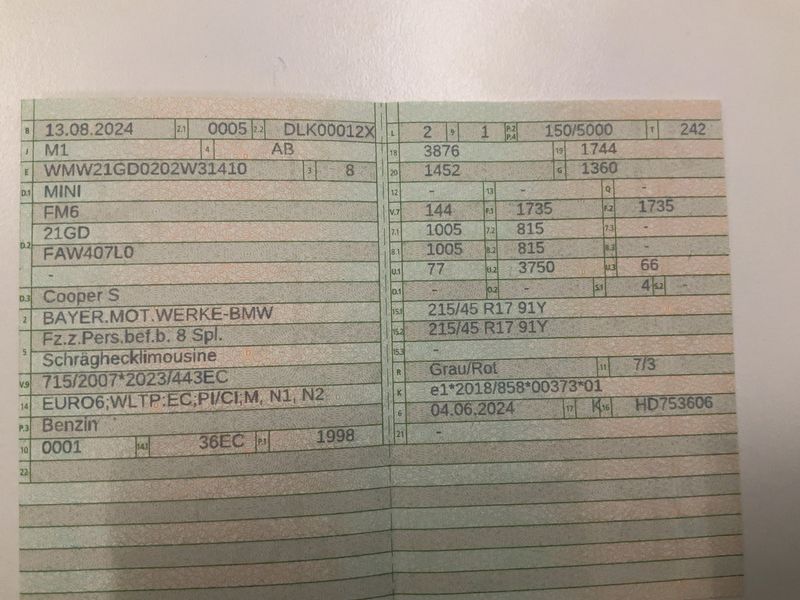 B 13.08.2024 2.1 0005 2.2 DLK00012X
J M1 4 AB
E WMW21GD0202W31410 3 8
D.1 MINI
FM6
D.2 21GD
FAW407L0
-
D.3 Cooper S
2 BAYER.MOT.WERKE-BMW
5 Fz.z.Pers.bef.b. 8 Spl.
Schräghecklimousine
V.9 715/2007*2023/443EC
14 EURO6;WLTP:EC,PI/CI;M, N1, N2
P.3 Benzin
10 0001 14.1 36EC P.1 1998
22
L 2 9 1 P.2 P.4 150/5000 T 242
18 3876 19 1744
20 1452 G 1360
12 - 13 - Q -
V.7 144 F.1 1735 F.2 1735
7.1 1005 7.2 815 7.3 -
8.1 1005 8.2 815 8.3 -
U.1 77 U.2 3750 U.3 66
O.1 - O.2 - S.1 4 S.2 -
15.1 215/45 R17 91Y
15.2 215/45 R17 91Y
15.3 -
R Grau/Rot 11 7/3
K e1*2018/858*00373*01
6 04.06.2024 17 K 16 HD753606
21 -